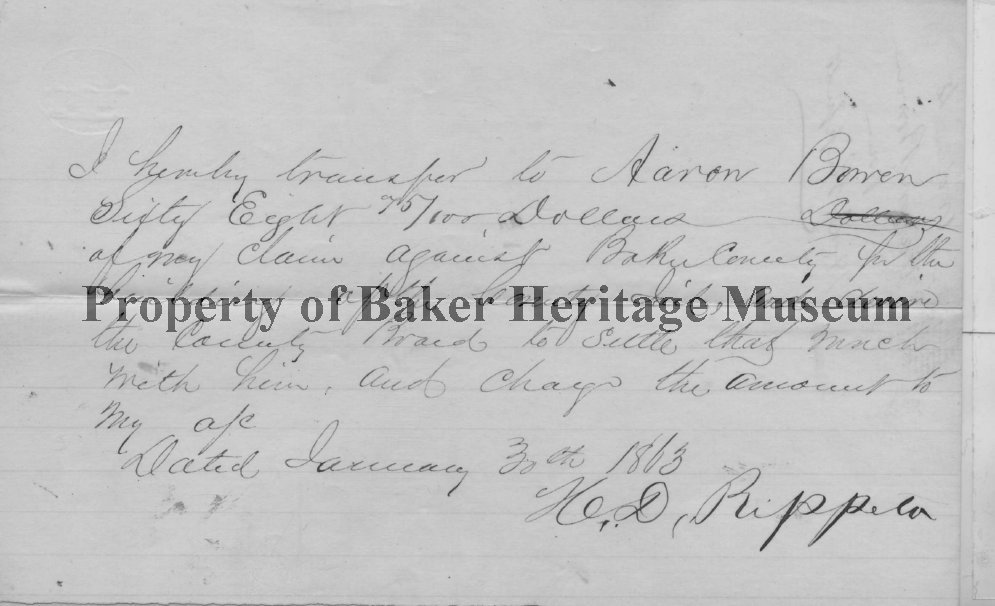 I hereby transfer to Aaron Bowen
Sixty Eight 75/100 Dollars Dollars
of my claim against Baker County for the
building of the County Jail, and desire
Property of Baker Heritage Museum
the County Board to settle that much
with him, and charge the amount to
my a/c
Dated January 30th 1863
H. D. Rippeto